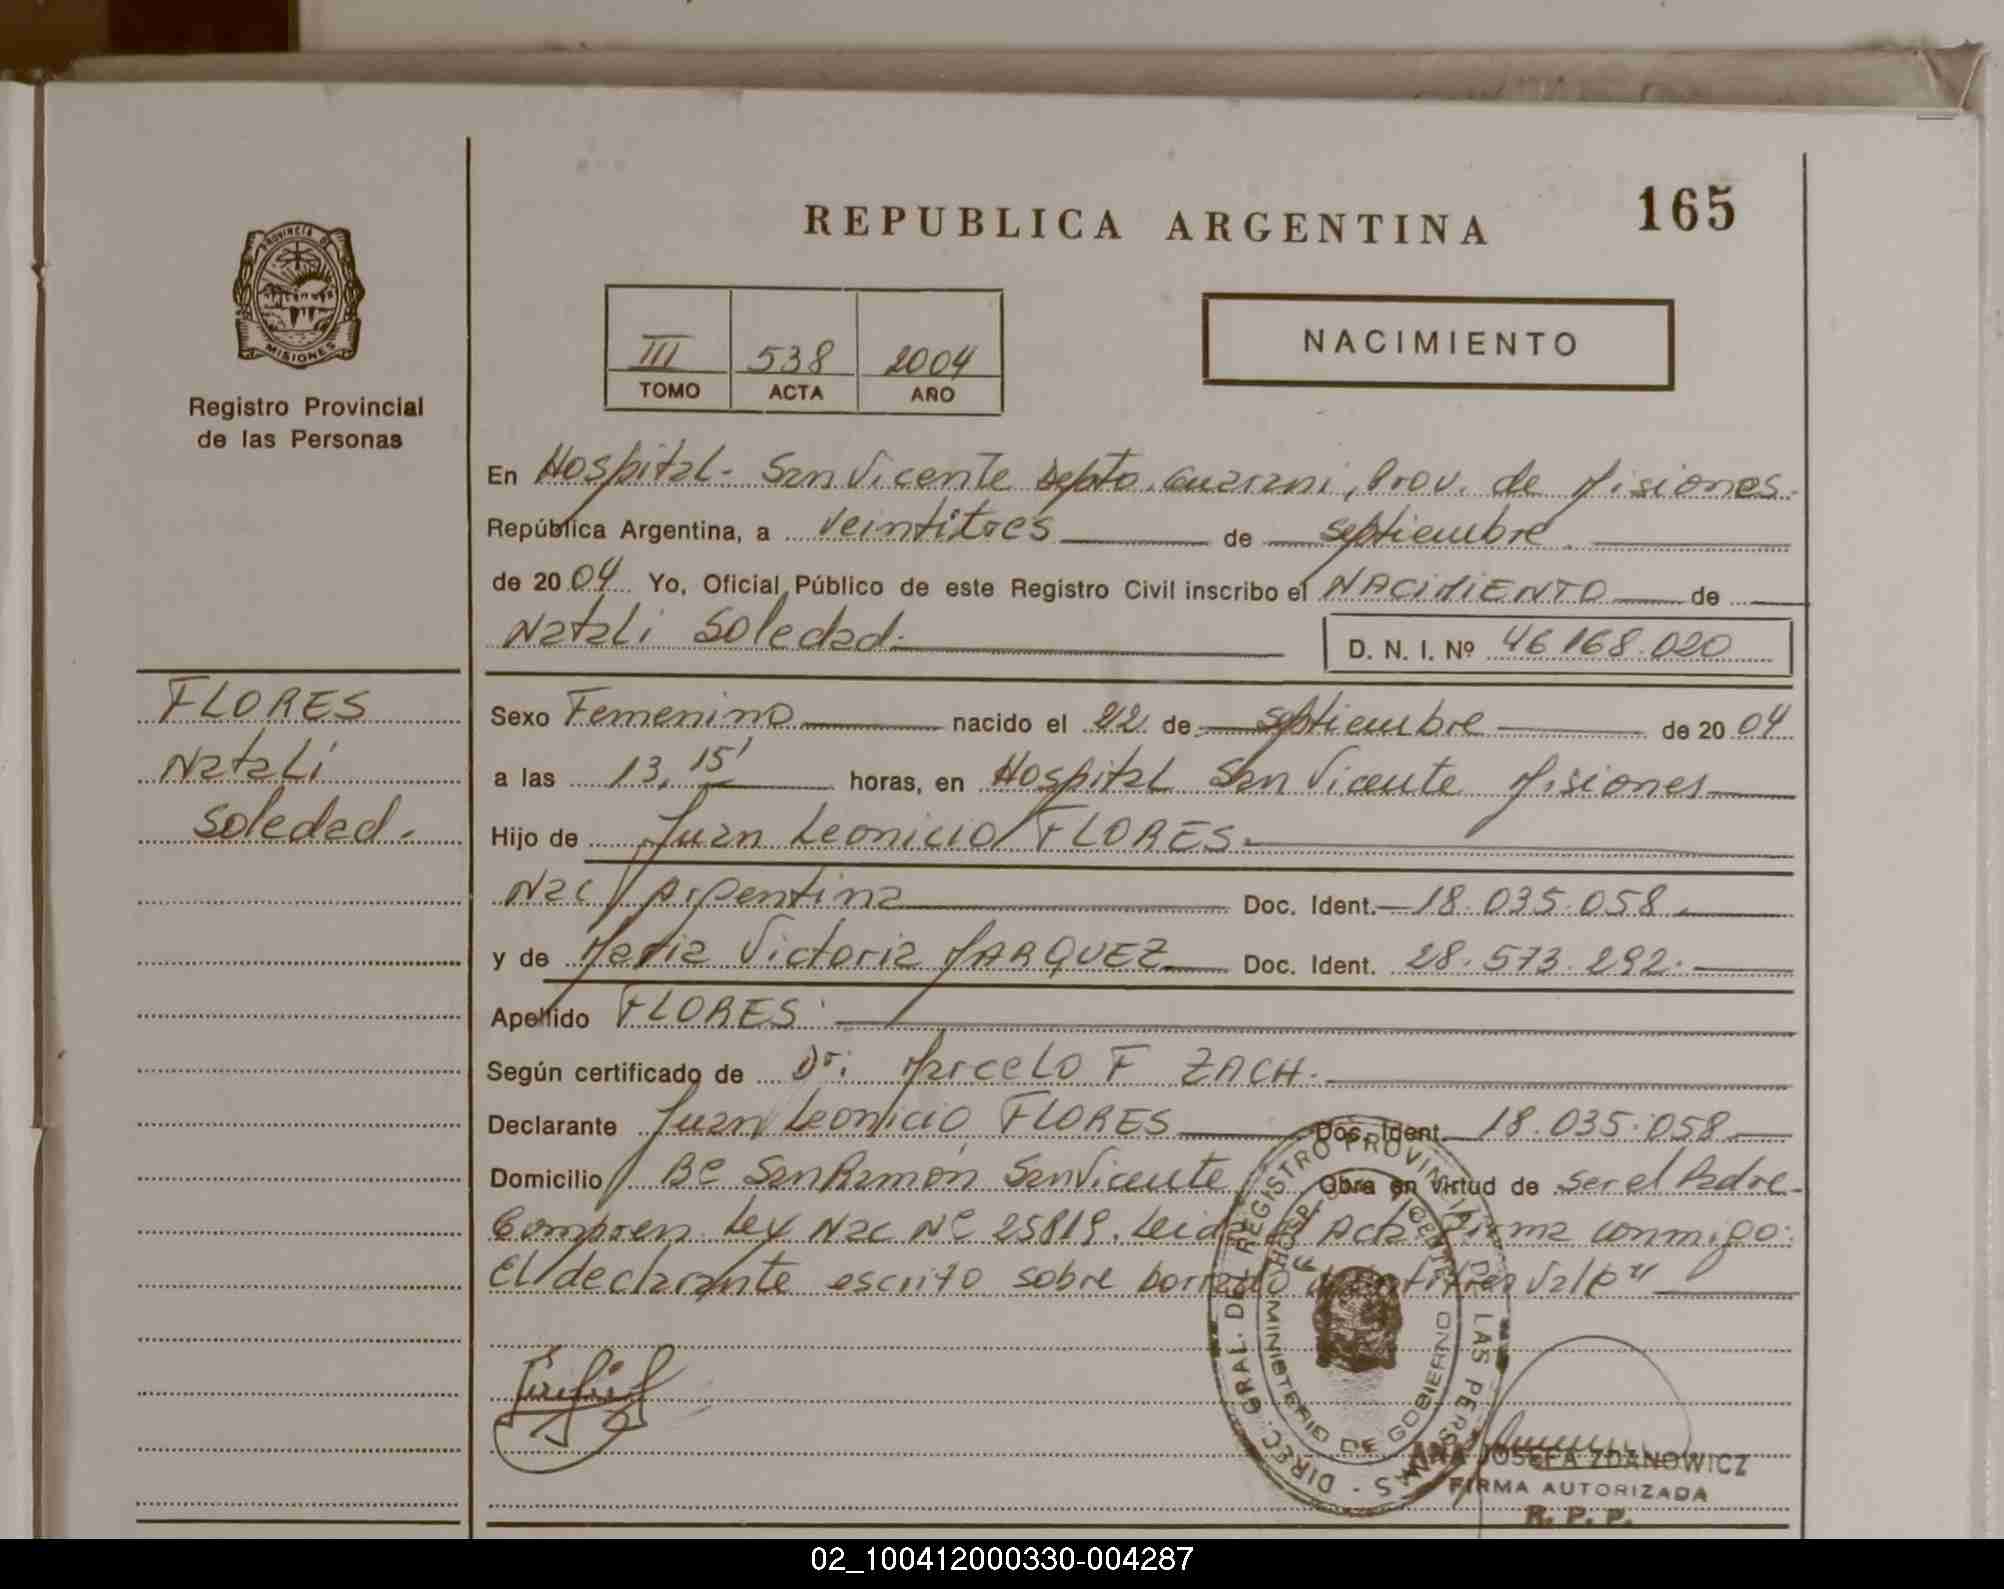 165
REPUBLICA ARGENTINA
PROVINCIA DE
MISIONES
Registro Provincial
de las Personas
III 538 2004
TOMO ACTA AÑO
NACIMIENTO
En Hospital- San Vicente Depto. Guarani, Prov. de Misiones.
República Argentina, a veintitres de septiembre.
de 2004 Yo, Oficial Público de este Registro Civil inscribo el NACIMIENTO de
Natali Soledad.
D. N. I. Nº 46 168.020
FLORES
Natali
Soledad.
Sexo Femenino nacido el 22 de septiembre de 2004
a las 13,15' horas, en Hospital San Vicente Misiones
Hijo de Juan Leonicio FLORES.
Nac Argentina Doc. Ident. 18.035.058.
y de Maria Victoria MARQUEZ Doc. Ident. 28.573.292.
Apellido FLORES
Según certificado de Dr: Marcelo F ZACH.
Declarante Juan Leonicio FLORES Doc. Ident. 18.035.058
Domicilio Bº San Ramón San Vicente Obra en virtud de ser el Padre
Compren. Ley Nac Nº 25819. Leida el Acta Firma conmigo:
El declarante escrito sobre borrado "veintitres Vale"
DIREC. GRAL. DEL REGISTRO PROVINCIAL DE LAS PERSONAS
MINISTERIO DE GOBIERNO
ANA JOSEFA ZDANOWICZ
FIRMA AUTORIZADA
R. P. P.
02_100412000330-004287